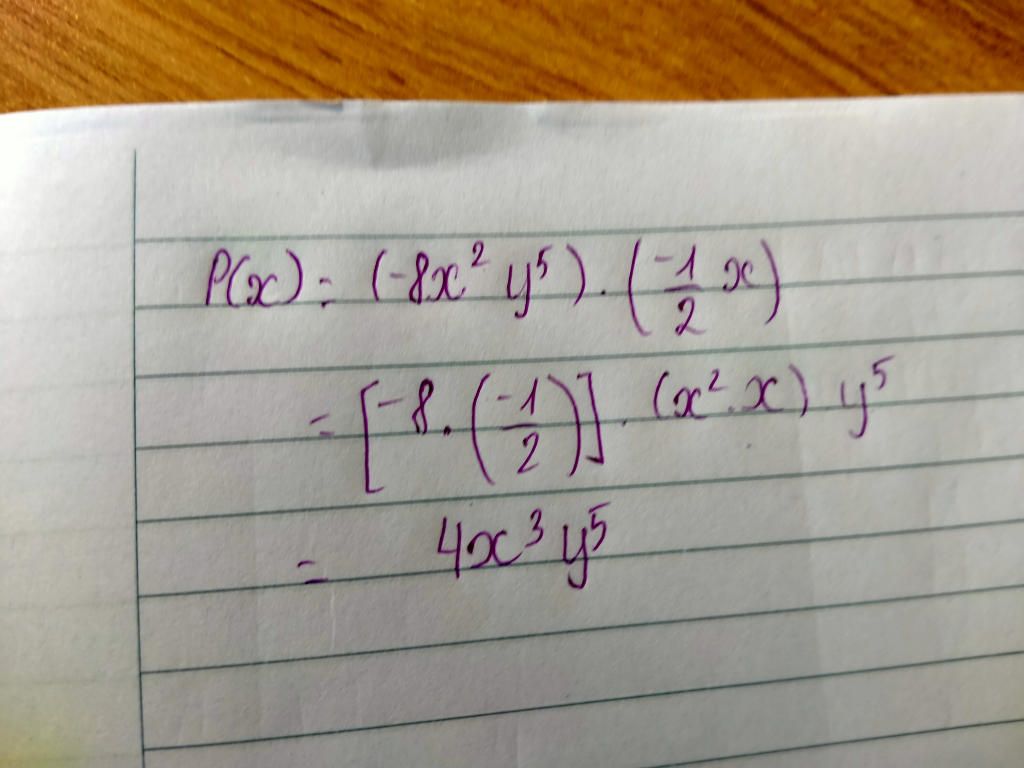 P(x) = (-8x² y⁵) . (-1/2 x)
= [-8 . (-1/2)] . (x² . x) y⁵
= 4x³ y⁵